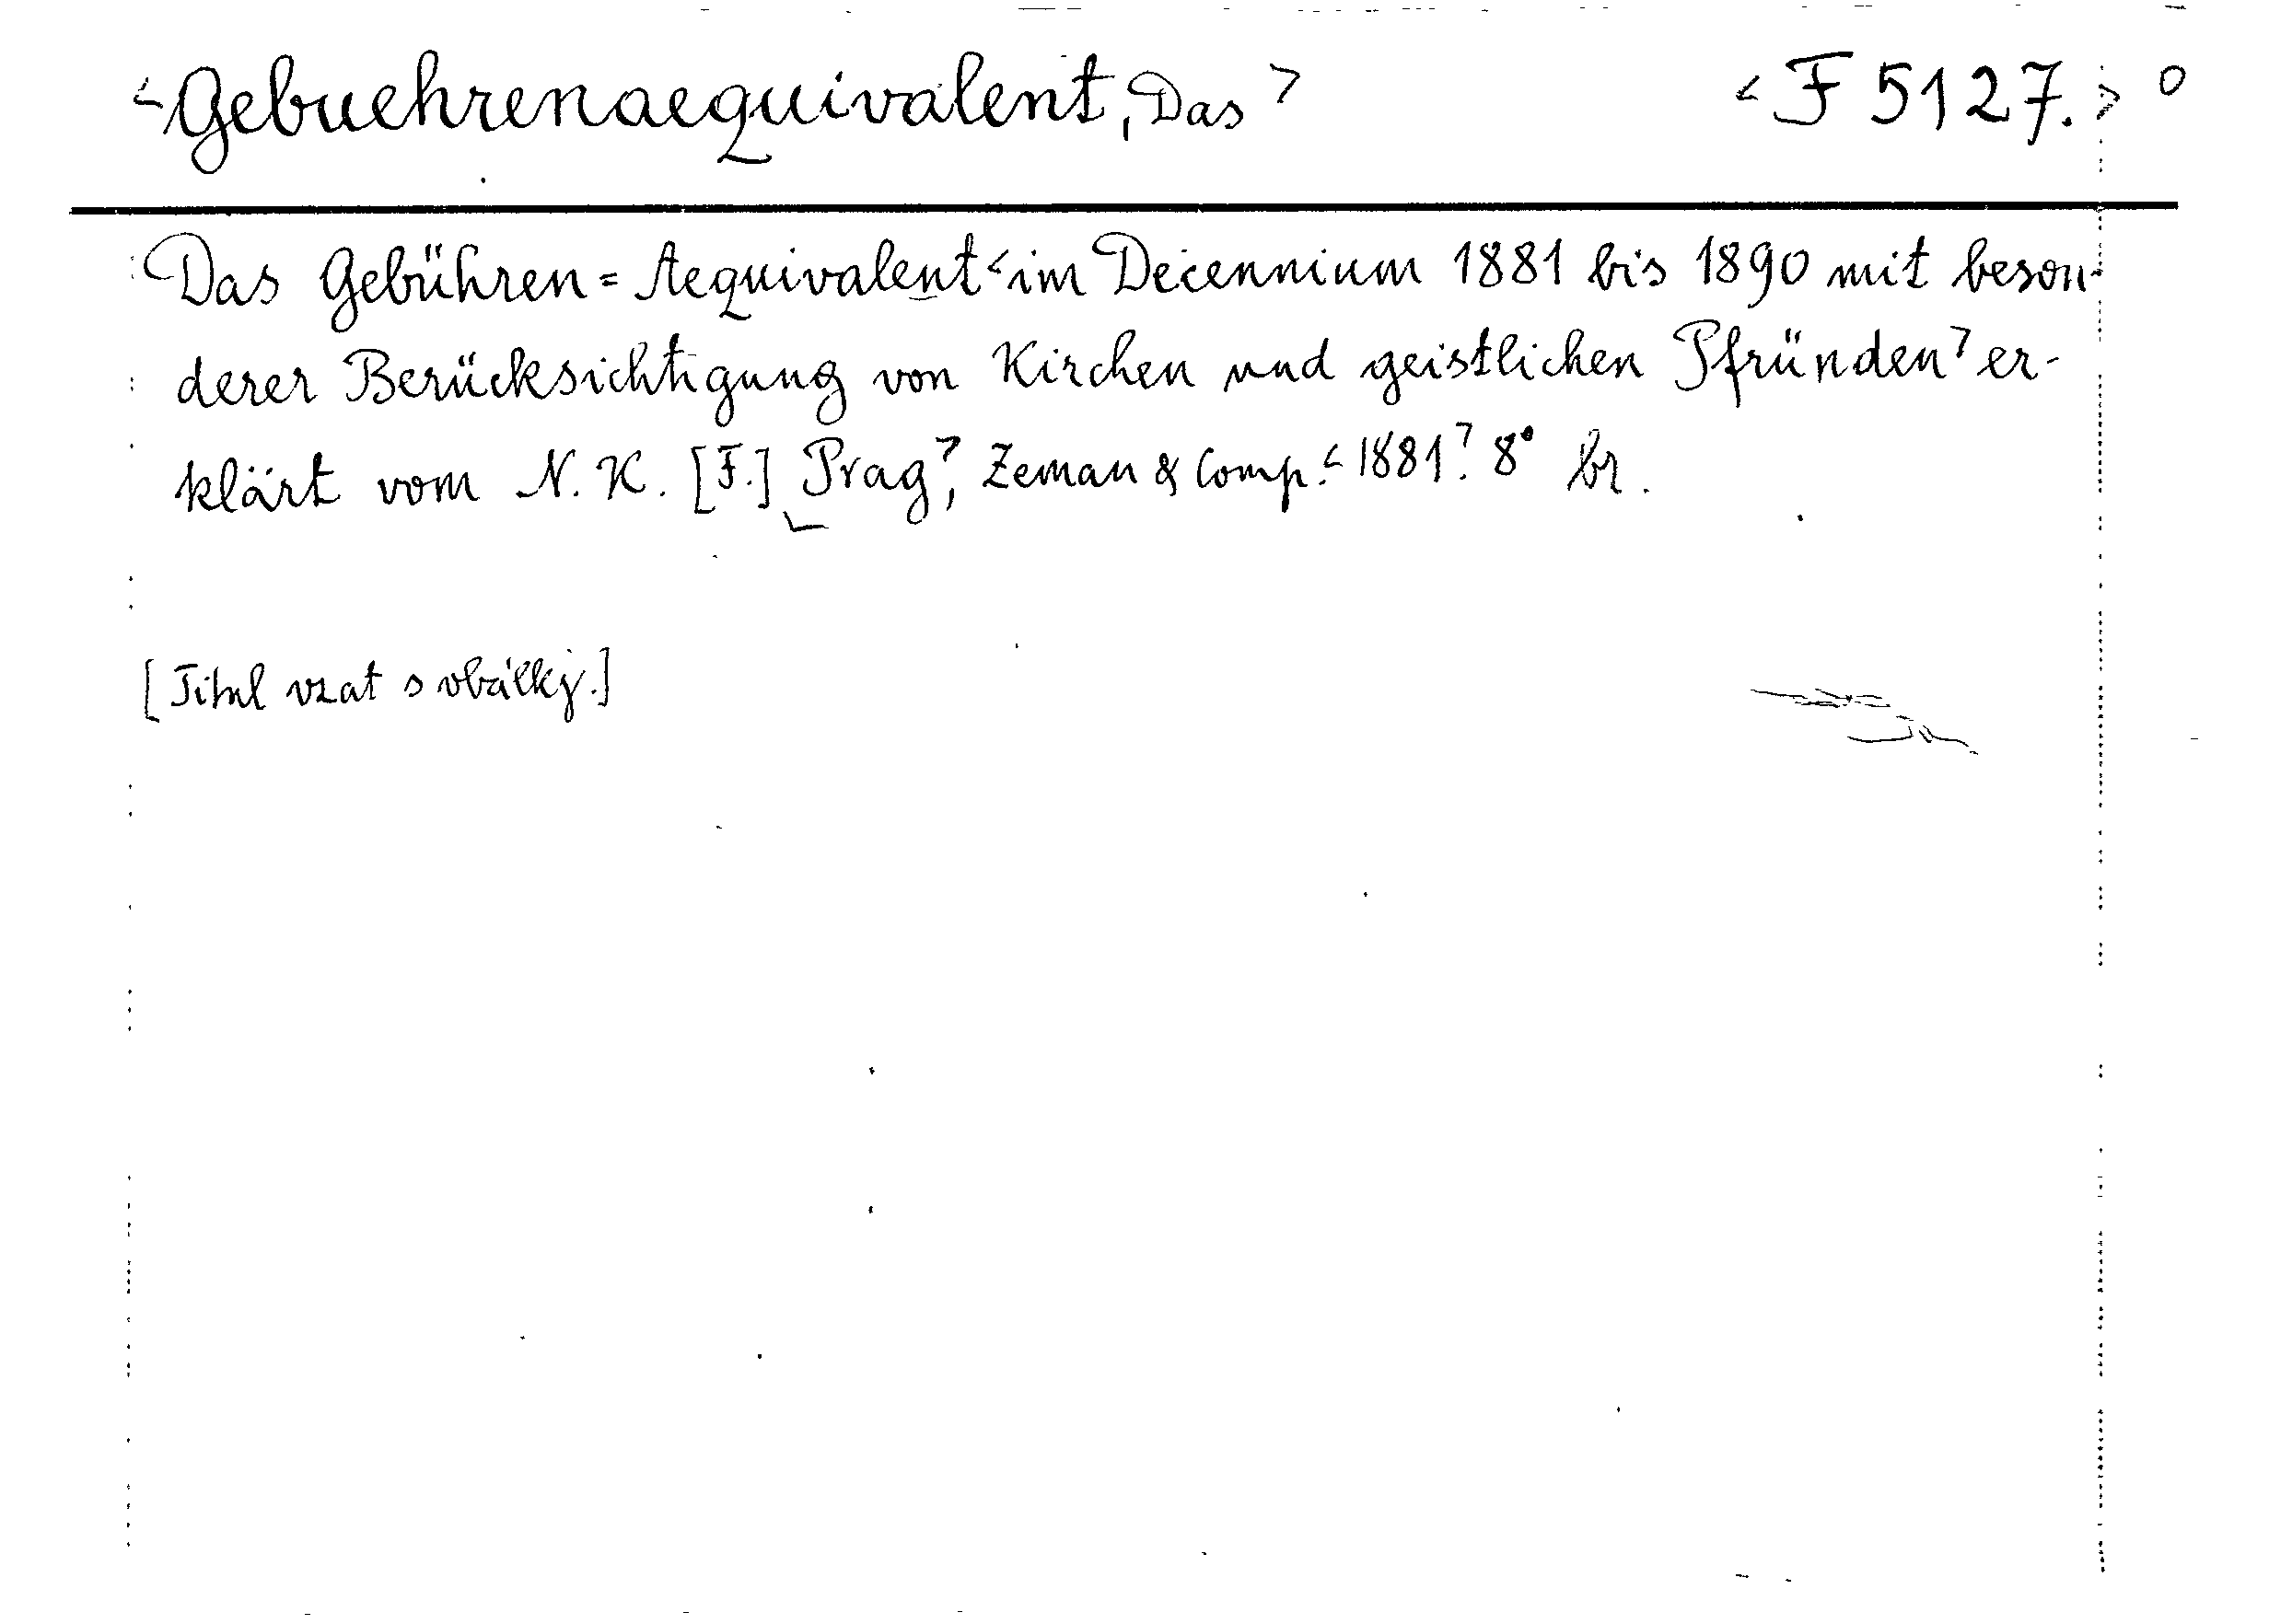 <Gebuehrenaequivalent, Das> <F 5127.> o
Das Gebühren=Aequivalent <im Decennium 1881 bis 1890 mit beson-
derer Berücksichtigung von Kirchen und geistlichen Pfründen> er-
klärt vom N. K. [F.] <Prag>, Zeman & Comp. <1881>. 8° br.
[Titul vzat s obálky.]